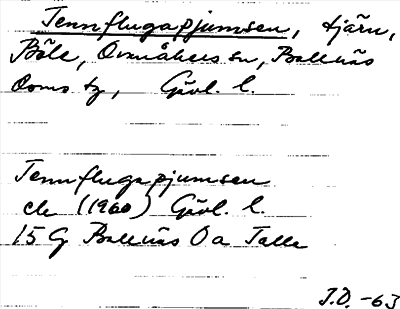 Tennflugapjumsen, tjärn,
Böle, Ovanåkers sn, Bollnäs
doms tg, Gävl. l.
Tennflugapjumsen
ek (1960) Gävl. l.
15 G Bollnäs Oa Talle
J.D. -63